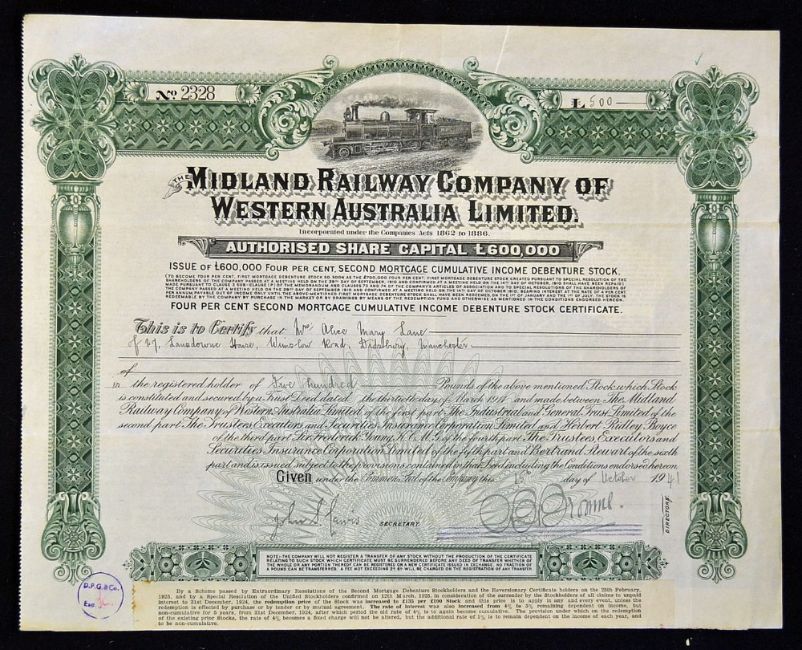 No. 2328
£ 500
THE
MIDLAND RAILWAY COMPANY OF
WESTERN AUSTRALIA LIMITED.
Incorporated under the Companies Acts 1862 to 1886.
AUTHORISED SHARE CAPITAL £600,000
ISSUE OF £600,000 FOUR PER CENT. SECOND MORTGAGE CUMULATIVE INCOME DEBENTURE STOCK.
FOUR PER CENT SECOND MORTGAGE CUMULATIVE INCOME DEBENTURE STOCK CERTIFICATE.
This is to Certify that Mrs Alice Mary Lane
of 27, Lansdowne House, Wilmslow Road, Didsbury, Manchester
of
is the registered holder of Five hundred Pounds of the above mentioned Stock which Stock
is constituted and secured by a Trust Deed dated the thirtieth day of March 1911 and made between The Midland
Railway Company of Western Australia Limited of the first part The Industrial and General Trust Limited of the
second part The Trustees Executors and Securities Insurance Corporation Limited and Herbert Ridley Boyce
of the third part Sir Frederick Young, K.C.M.G. of the fourth part The Trustees Executors and
Securities Insurance Corporation Limited of the fifth part and Bertrand Stewart of the sixth
part and is issued subject to the provisions contained in that Deed including the Conditions endorsed hereon.
Given under the Common Seal of the Company this day of October 1941
SECRETARY.
DIRECTORS
NOTE:-THE COMPANY WILL NOT REGISTER A TRANSFER OF ANY STOCK WITHOUT THE PRODUCTION OF THE CERTIFICATE
RELATING TO SUCH STOCK WHICH CERTIFICATE MUST BE SURRENDERED BEFORE ANY DEED OF TRANSFER WHETHER OF
THE WHOLE OR ANY PORTION THEREOF CAN BE REGISTERED OR A NEW CERTIFICATE ISSUED IN EXCHANGE. NO FRACTION OF
A POUND CAN BE TRANSFERRED. A FEE NOT EXCEEDING 2/6 WILL BE CHARGED ON THE REGISTRATION OF ANY TRANSFER
D.P.G.&Co.
Exd.
By a Scheme passed by Extraordinary Resolutions of the Second Mortgage Debenture Stockholders and the Reversionary Certificate holders on the 25th February,
1925, and by a Special Resolution of the United Stockholders confirmed on 12th March, 1925, in consideration of the surrender by the Stockholders of all claims to unpaid
interest to 31st December, 1924, the redemption price of the Stock was increased to £135 per £100 Stock and this price is to apply in any and every event, unless the
redemption is effected by purchase or by tender or by mutual agreement. The rate of interest was also increased from 4% to 5% remaining dependent on Income, but
non-cumulative for 5 years, from 31st December, 1924, after which period the old rate of 4% is to again become cumulative. The provision under which on the redemption
of the existing prior Stocks, the rate of 4% becomes a fixed charge will not be altered, but the additional rate of 1% is to remain dependent on the income of each year, and
to be non-cumulative.